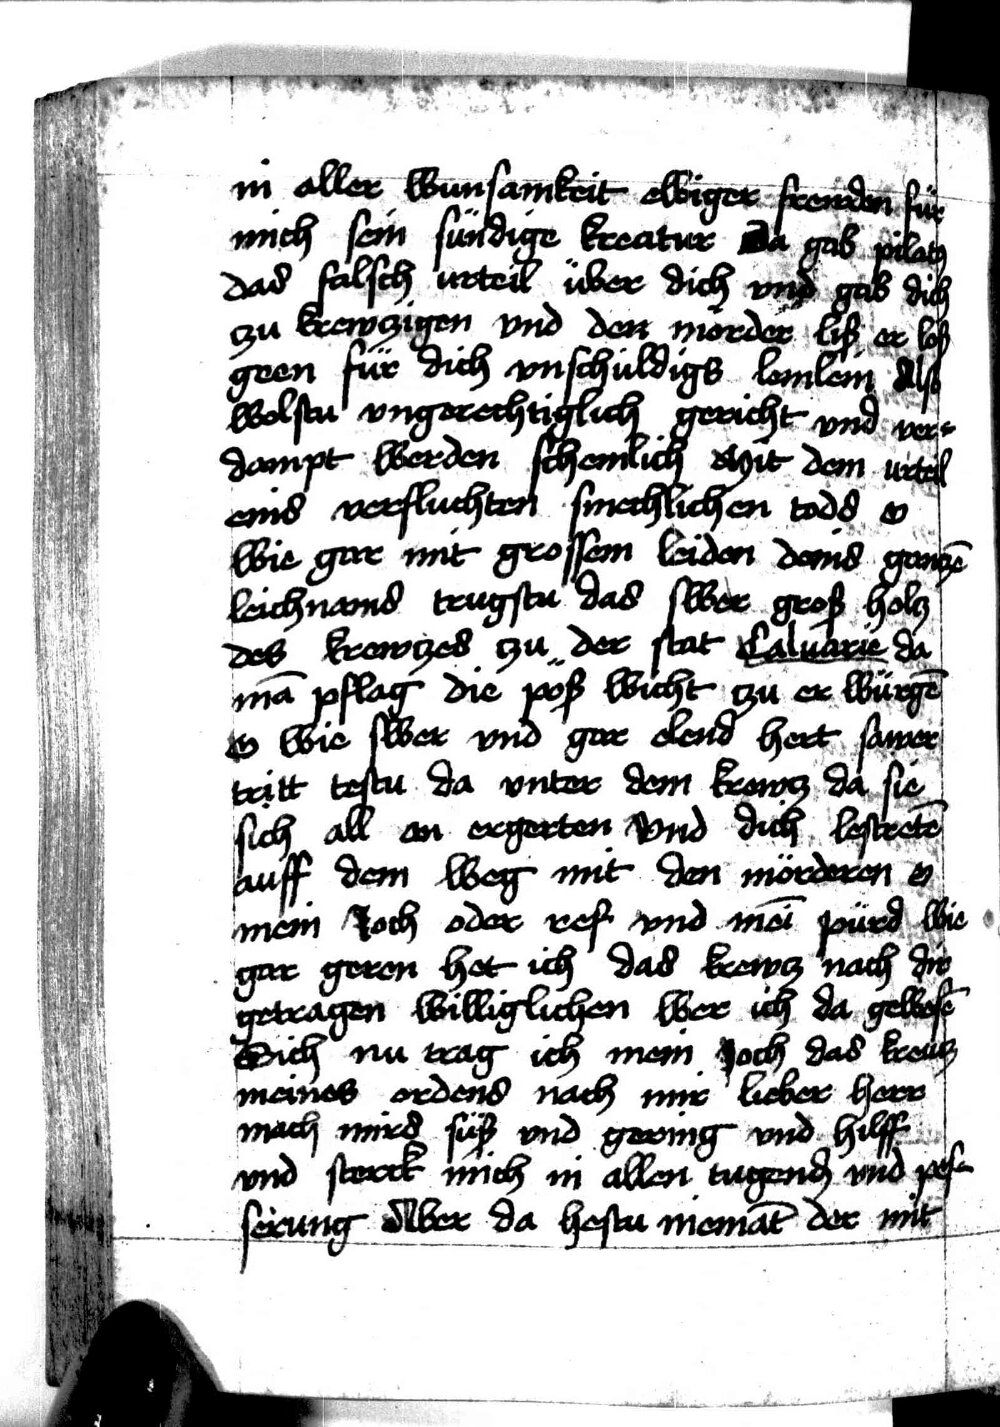 in aller wunsamkeit ewiger frewden für
mich sein sündige kreatur Da gab pilatꝫ
das falsch urteil über dich vnd gab dich
zu krewczigen vnd den mörder liß er loß
geen für dich vnschuldigs lemlein Also
wolstu vngerechtiglich gericht vnd ver⸗
dampt werden schemlich Mit dem urteil
eins verfluchten smechlichen tods O
wie gar mit grossem leiden deins ganczē
leichnams trugstu das swer groß holcz
des krewczes zu der stat Caluarie da
mā pflag die pöß wicht zu er würgē
O wie swer vnd gar elend hert sawer
tritt testu da vnter dem krewcz da sie
sich all an ergerten Vnd dich lestretē
auff dem weg mit den mörderen O
mein Joch oder ref vnd mei̅ pürd wie
gar geren het ich das krewcz nach dir
getragen williglichen wer ich da gewesē
Sich nu trag ich mein Joch das kreucz
meines ordens nach mir lieber herr
mach mirs süß vnd gering vnd hilff
vnd sterck mich in allen tugendꝫ vnd pes⸗
serung Aber da hestu niemāt der mit